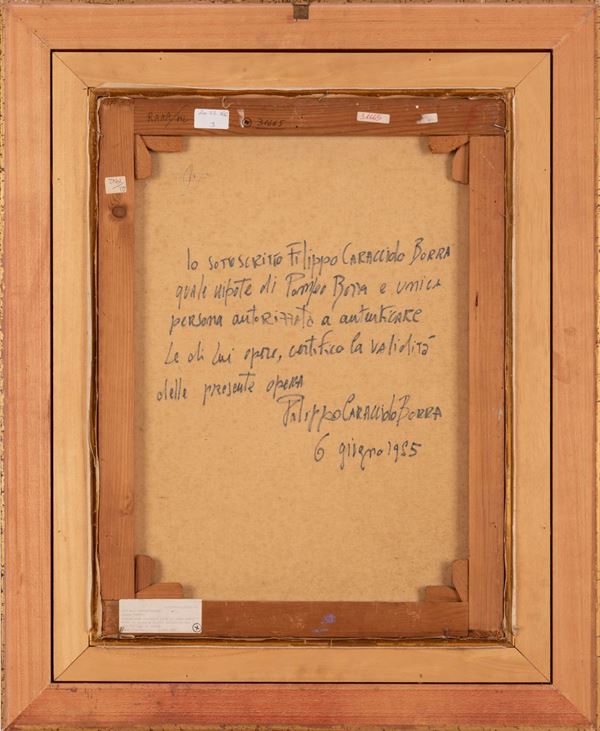 31665
31665
Io sottoscritto Filippo Caracciolo Borra
quale nipote di Pompeo Borra e unica
persona autorizzata a autenticare
le di lui opere, certifico la validità
delle presente opera
Filippo Caracciolo Borra
6 giugno 1985